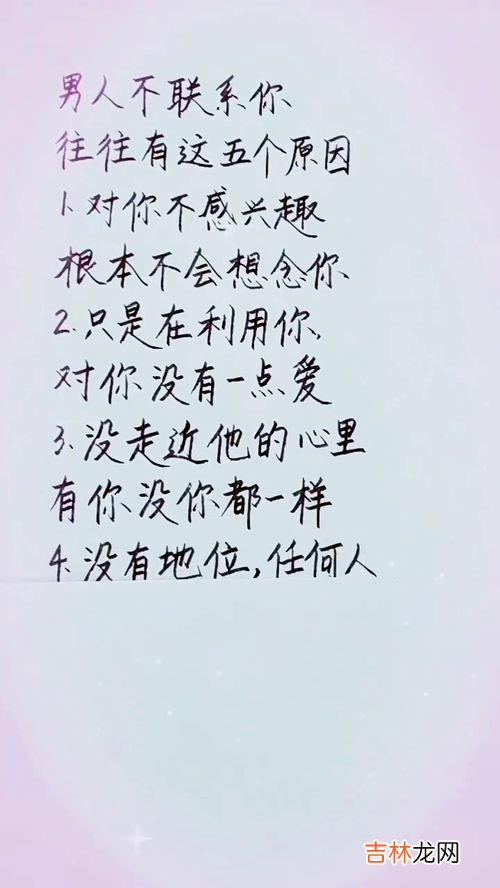 男人不联系你
往往有这五个原因
1.对你不感兴趣
根本不会想念你
2.只是在利用你,
对你没有一点爱
3.没走近他的心里
有你没你都一样
4.没有地位,任何人
吉林龙网